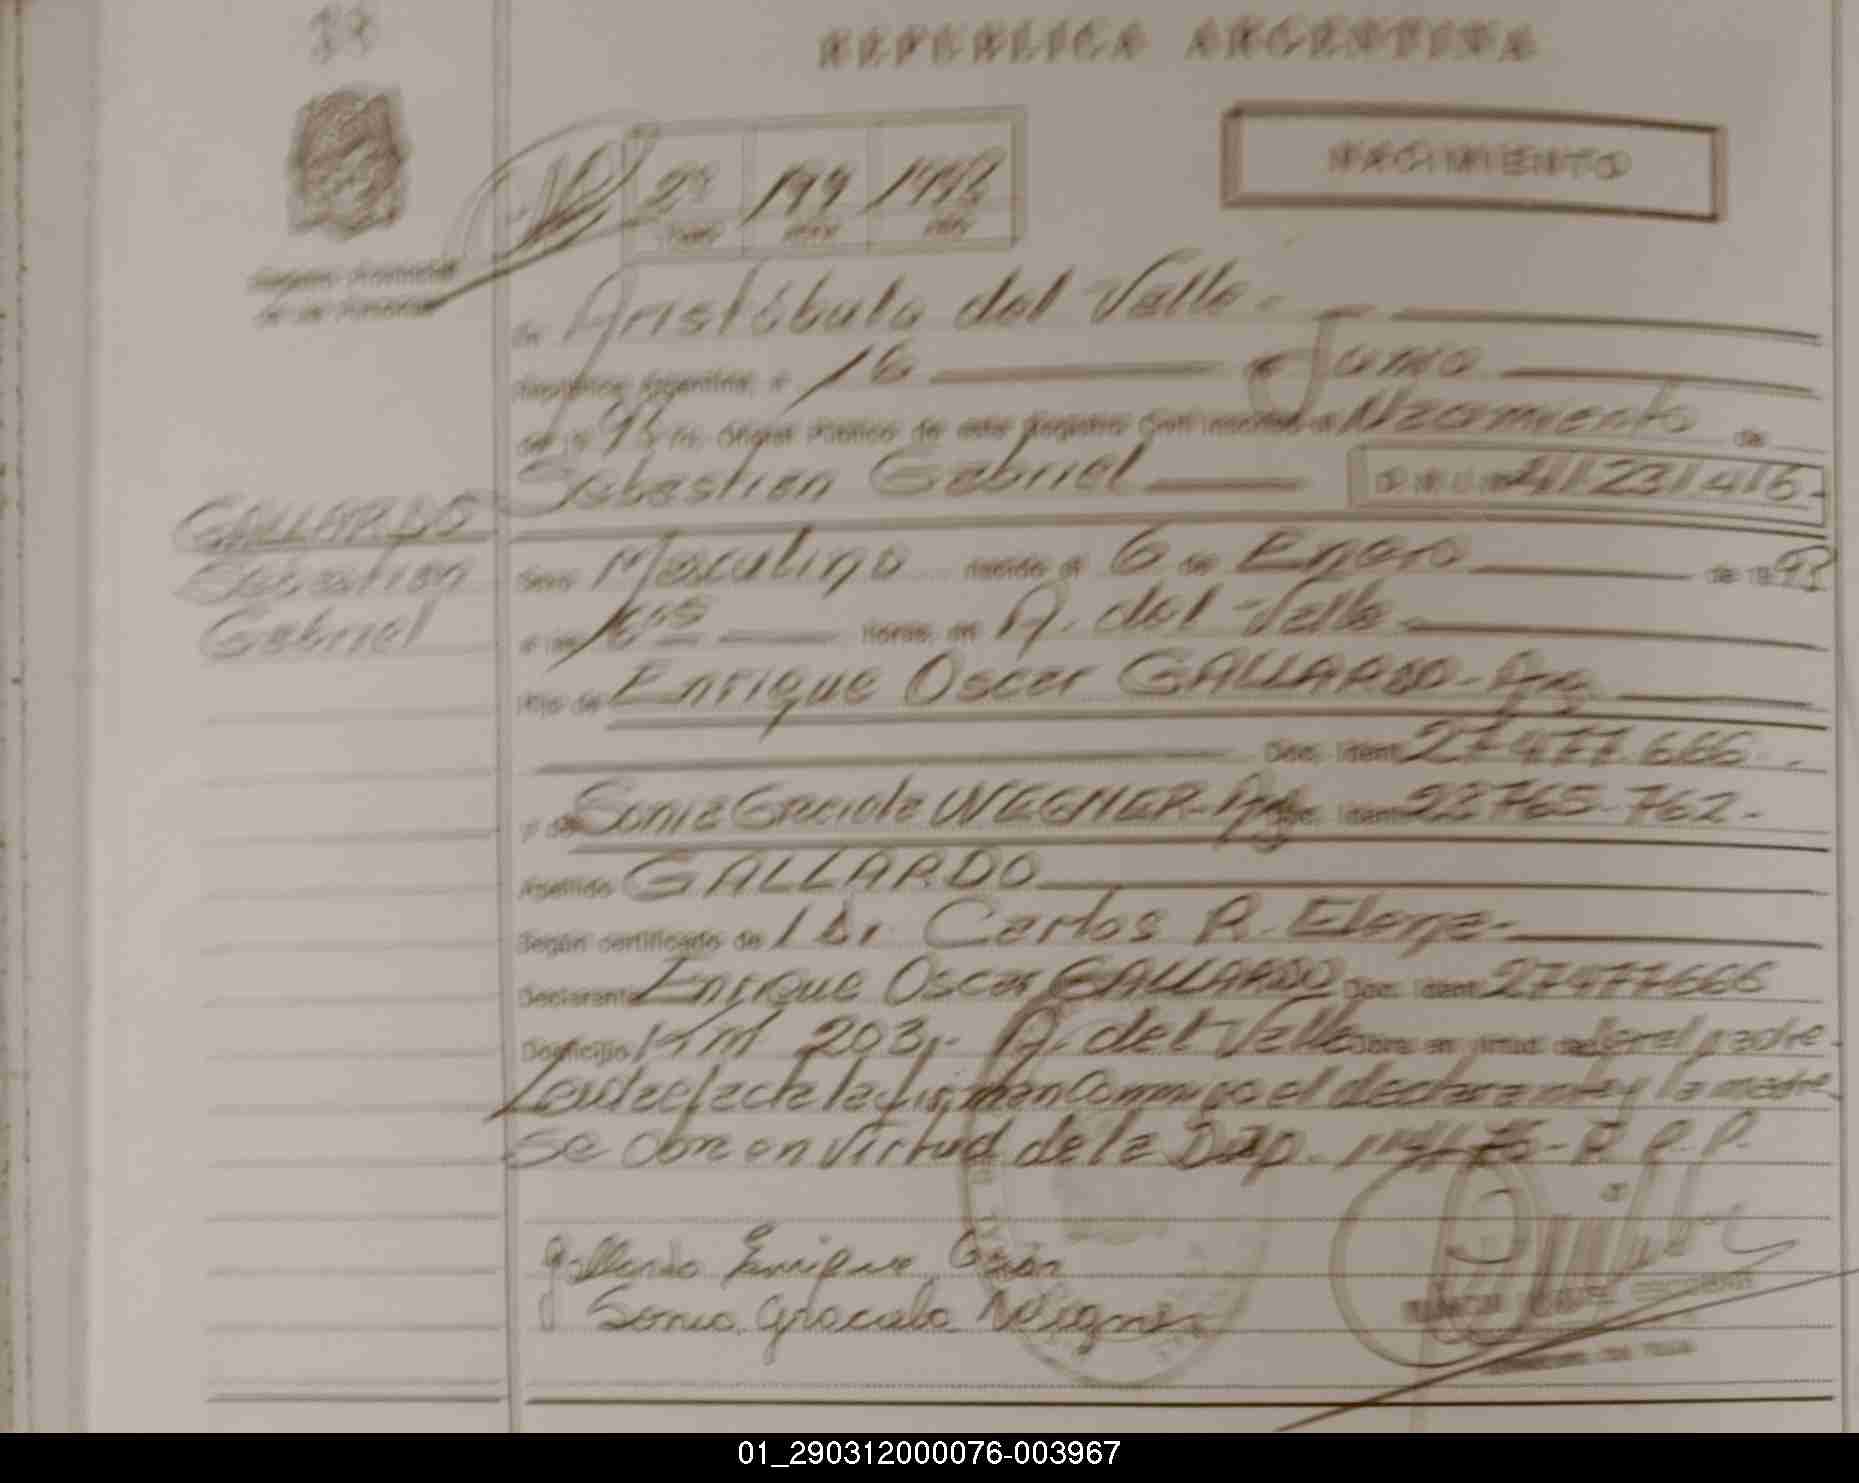 REPUBLICA ARGENTINA
NACIMIENTO
2º 199 1993
TOMO ACTA AÑO
Registro Provincial
de las Personas
En Aristóbulo del Valle.-
República Argentina, a 16 de Junio
de 19 93 Yo, Oficial Público de este Registro Civil inscribo el Nacimiento de
Sebastian Gabriel
GALLARDO
Sebastian
Gabriel
Sexo Masculino nacido el 6 de Enero de 19 93
a las horas, en A. del Valle.
Hijo de Enrique Oscar GALLARDO - Arg
Doc. Ident. 27477.666.
y de Sonia Graciela WEGNER - Arg Doc. Ident. 22765-762-
Apellido GALLARDO
Según certificado de Dr. Carlos R. Elena.
Declarante Enrique Oscar GALLARDO Doc. Ident. 27477666
Domicilio Km 203,- A. del Valle Obra en virtud de ser el padre.
Leída el acta la firman conmigo el declarante y la madre.
Se obra en virtud de la Disp. R.P.P.
Gallardo Enrique Oscar
Sonia Graciela Wegner
01_290312000076-003967